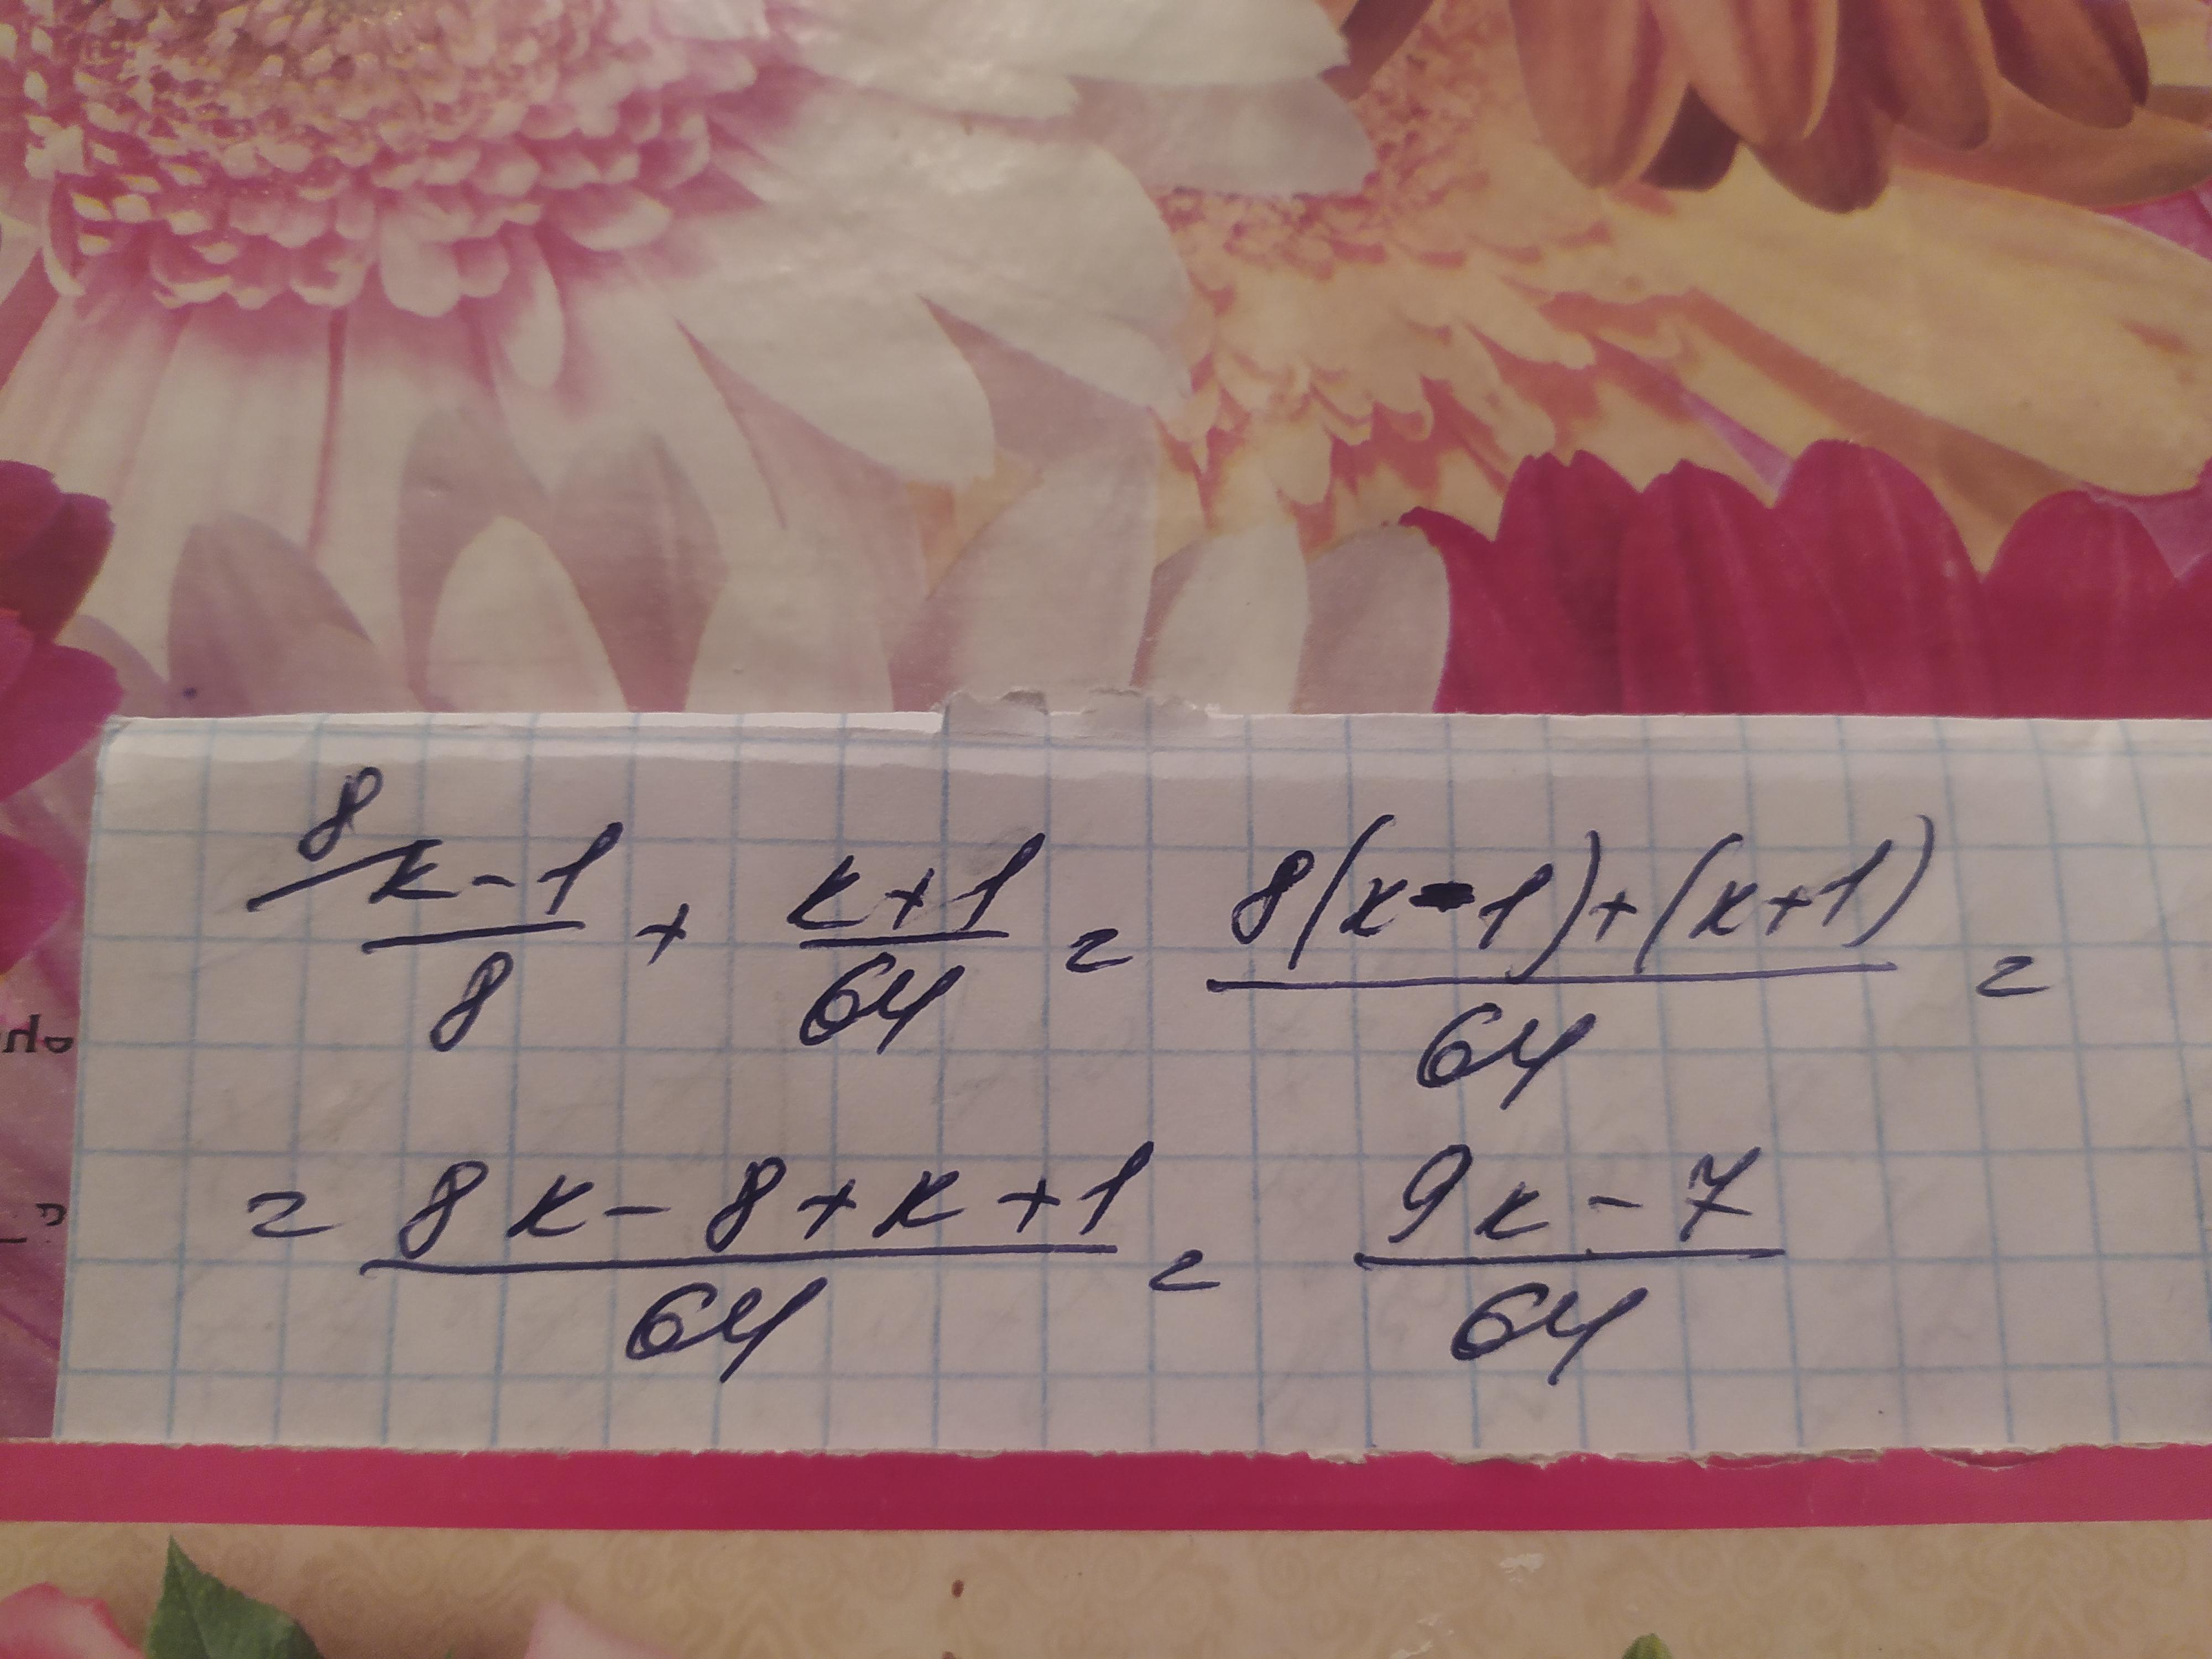 8/ x-1/8 + x+1/64 = 8(x-1)+(x+1)/64 =
= 8x-8+x+1/64 = 9x-7/64